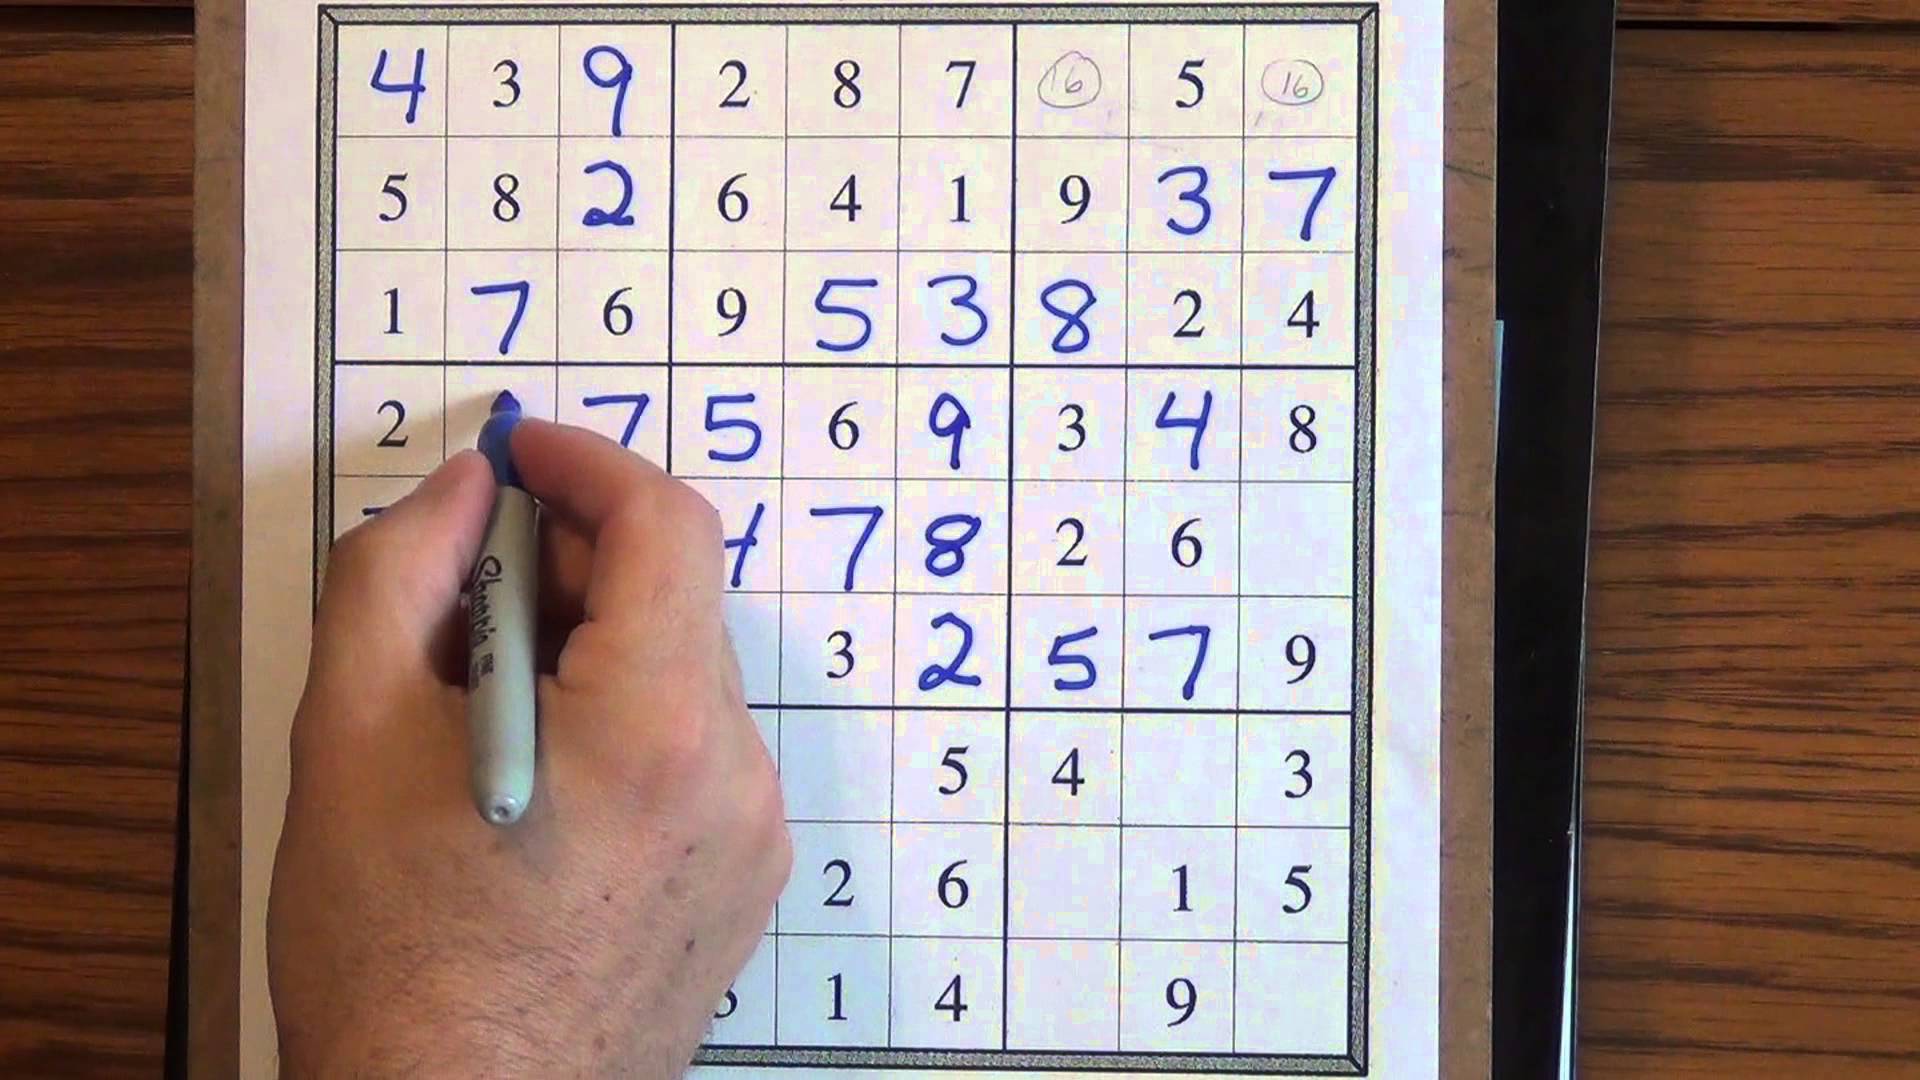 4 3 9 2 8 7 16 5 16
5 8 2 6 4 1 9 3 7
1 7 6 9 5 3 8 2 4
2 7 5 6 9 3 4 8
4 7 8 2 6
3 2 5 7 9
5 4 3
2 6 1 5
1 4 9
Sharpie